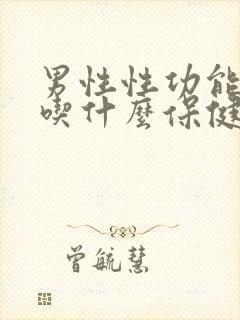 男性性功能
喫什麼保健
曾毓慧